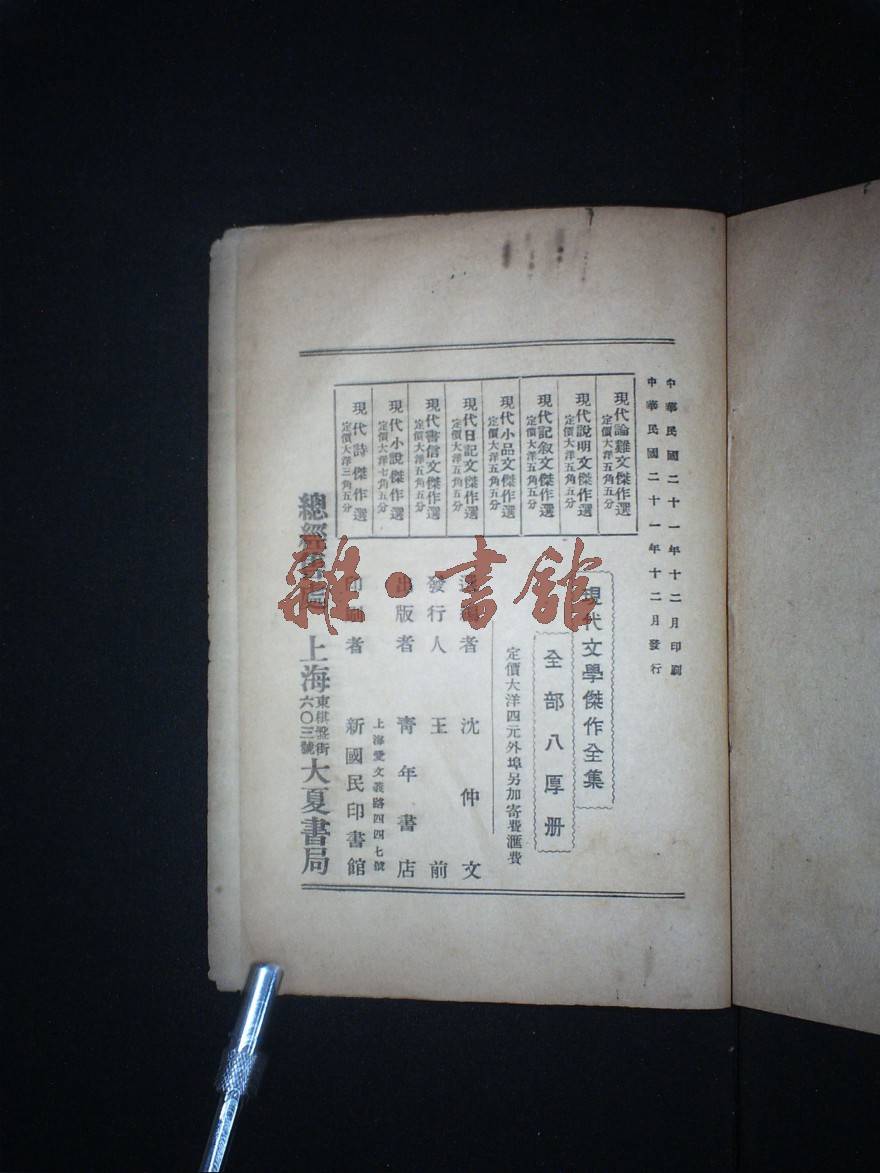 中華民國二十一年十二月印刷
中華民國二十一年十二月發行
現代論難文傑作選
定價大洋五角五分
現代說明文傑作選
定價大洋五角五分
現代記叙文傑作選
定價大洋五角五分
現代小品文傑作選
定價大洋五角五分
現代日記文傑作選
定價大洋五角五分
現代書信文傑作選
定價大洋五角五分
現代小說傑作選
定價大洋七角五分
現代詩傑作選
定價大洋三角五分
現代文學傑作全集
全部八厚册
定價大洋四元外埠另加寄費滙費
者 沈仲文
發行人 王前
出版者 青年書店
上海愛文義路四四七號
印刷者 新國民印書館
總經售處 上海東棋盤街六〇三號大夏書局
雜·書舘